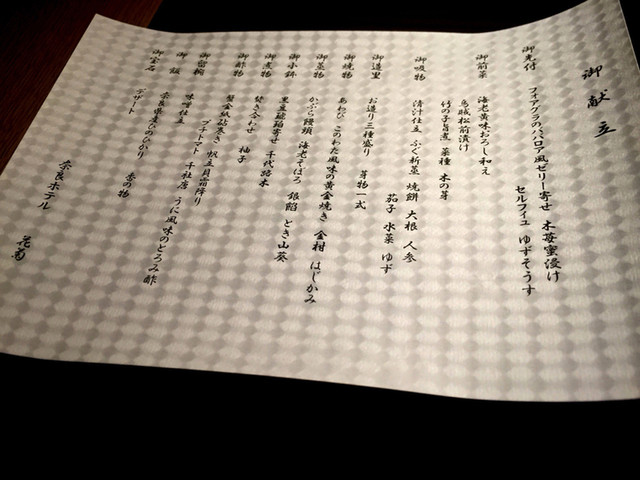 御献立
御先付
フォアグラのババロア風ゼリー寄せ 木苺蜜漬け
セルフィユ ゆずそうす
御前菜
海老黄味おろし和え
烏賊松前漬け
竹の子旨煮 菜種 木の芽
御吸物
清汁仕立 ふぐ新薯 焼餅 大根 人参
茄子 水菜 ゆず
御造里
お造り三種盛り 芽物一式
御焼物
あわび このわた風味の黄金焼き 金柑 はじかみ
御蒸物
かぶら饅頭 海老そぼろ 銀餡 とき山葵
御小鉢
黒豆琥珀寄せ 千代呂木
御煮物
焚き合わせ 柚子
御酢物
蟹金紙砧巻き 帆立貝霜降り
プチトマト 千社唐 うに風味のとろみ酢
御留椀
味噌仕立
御飯
奈良県産ひのひかり 香の物
御宝石
デザート
奈良ホテル 花菊